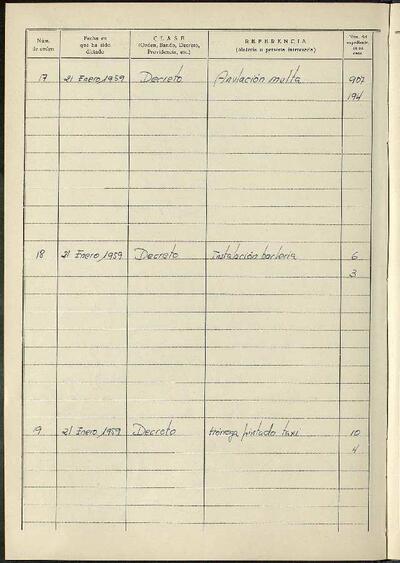 Núm. de orden
Fecha en que ha sido dictado
CLASE
(Orden, Bando, Decreto, Providencia, etc.)
REFERENCIA
(Materia o persona interesada)
Núm. del expediente en su caso
17 21 Enero 1959 Decreto Anulación multa 907
194
18 21 Enero 1959 Decreto Instalación barberia 6
3
19 21 Enero 1959 Decreto pintado taxi 10
4